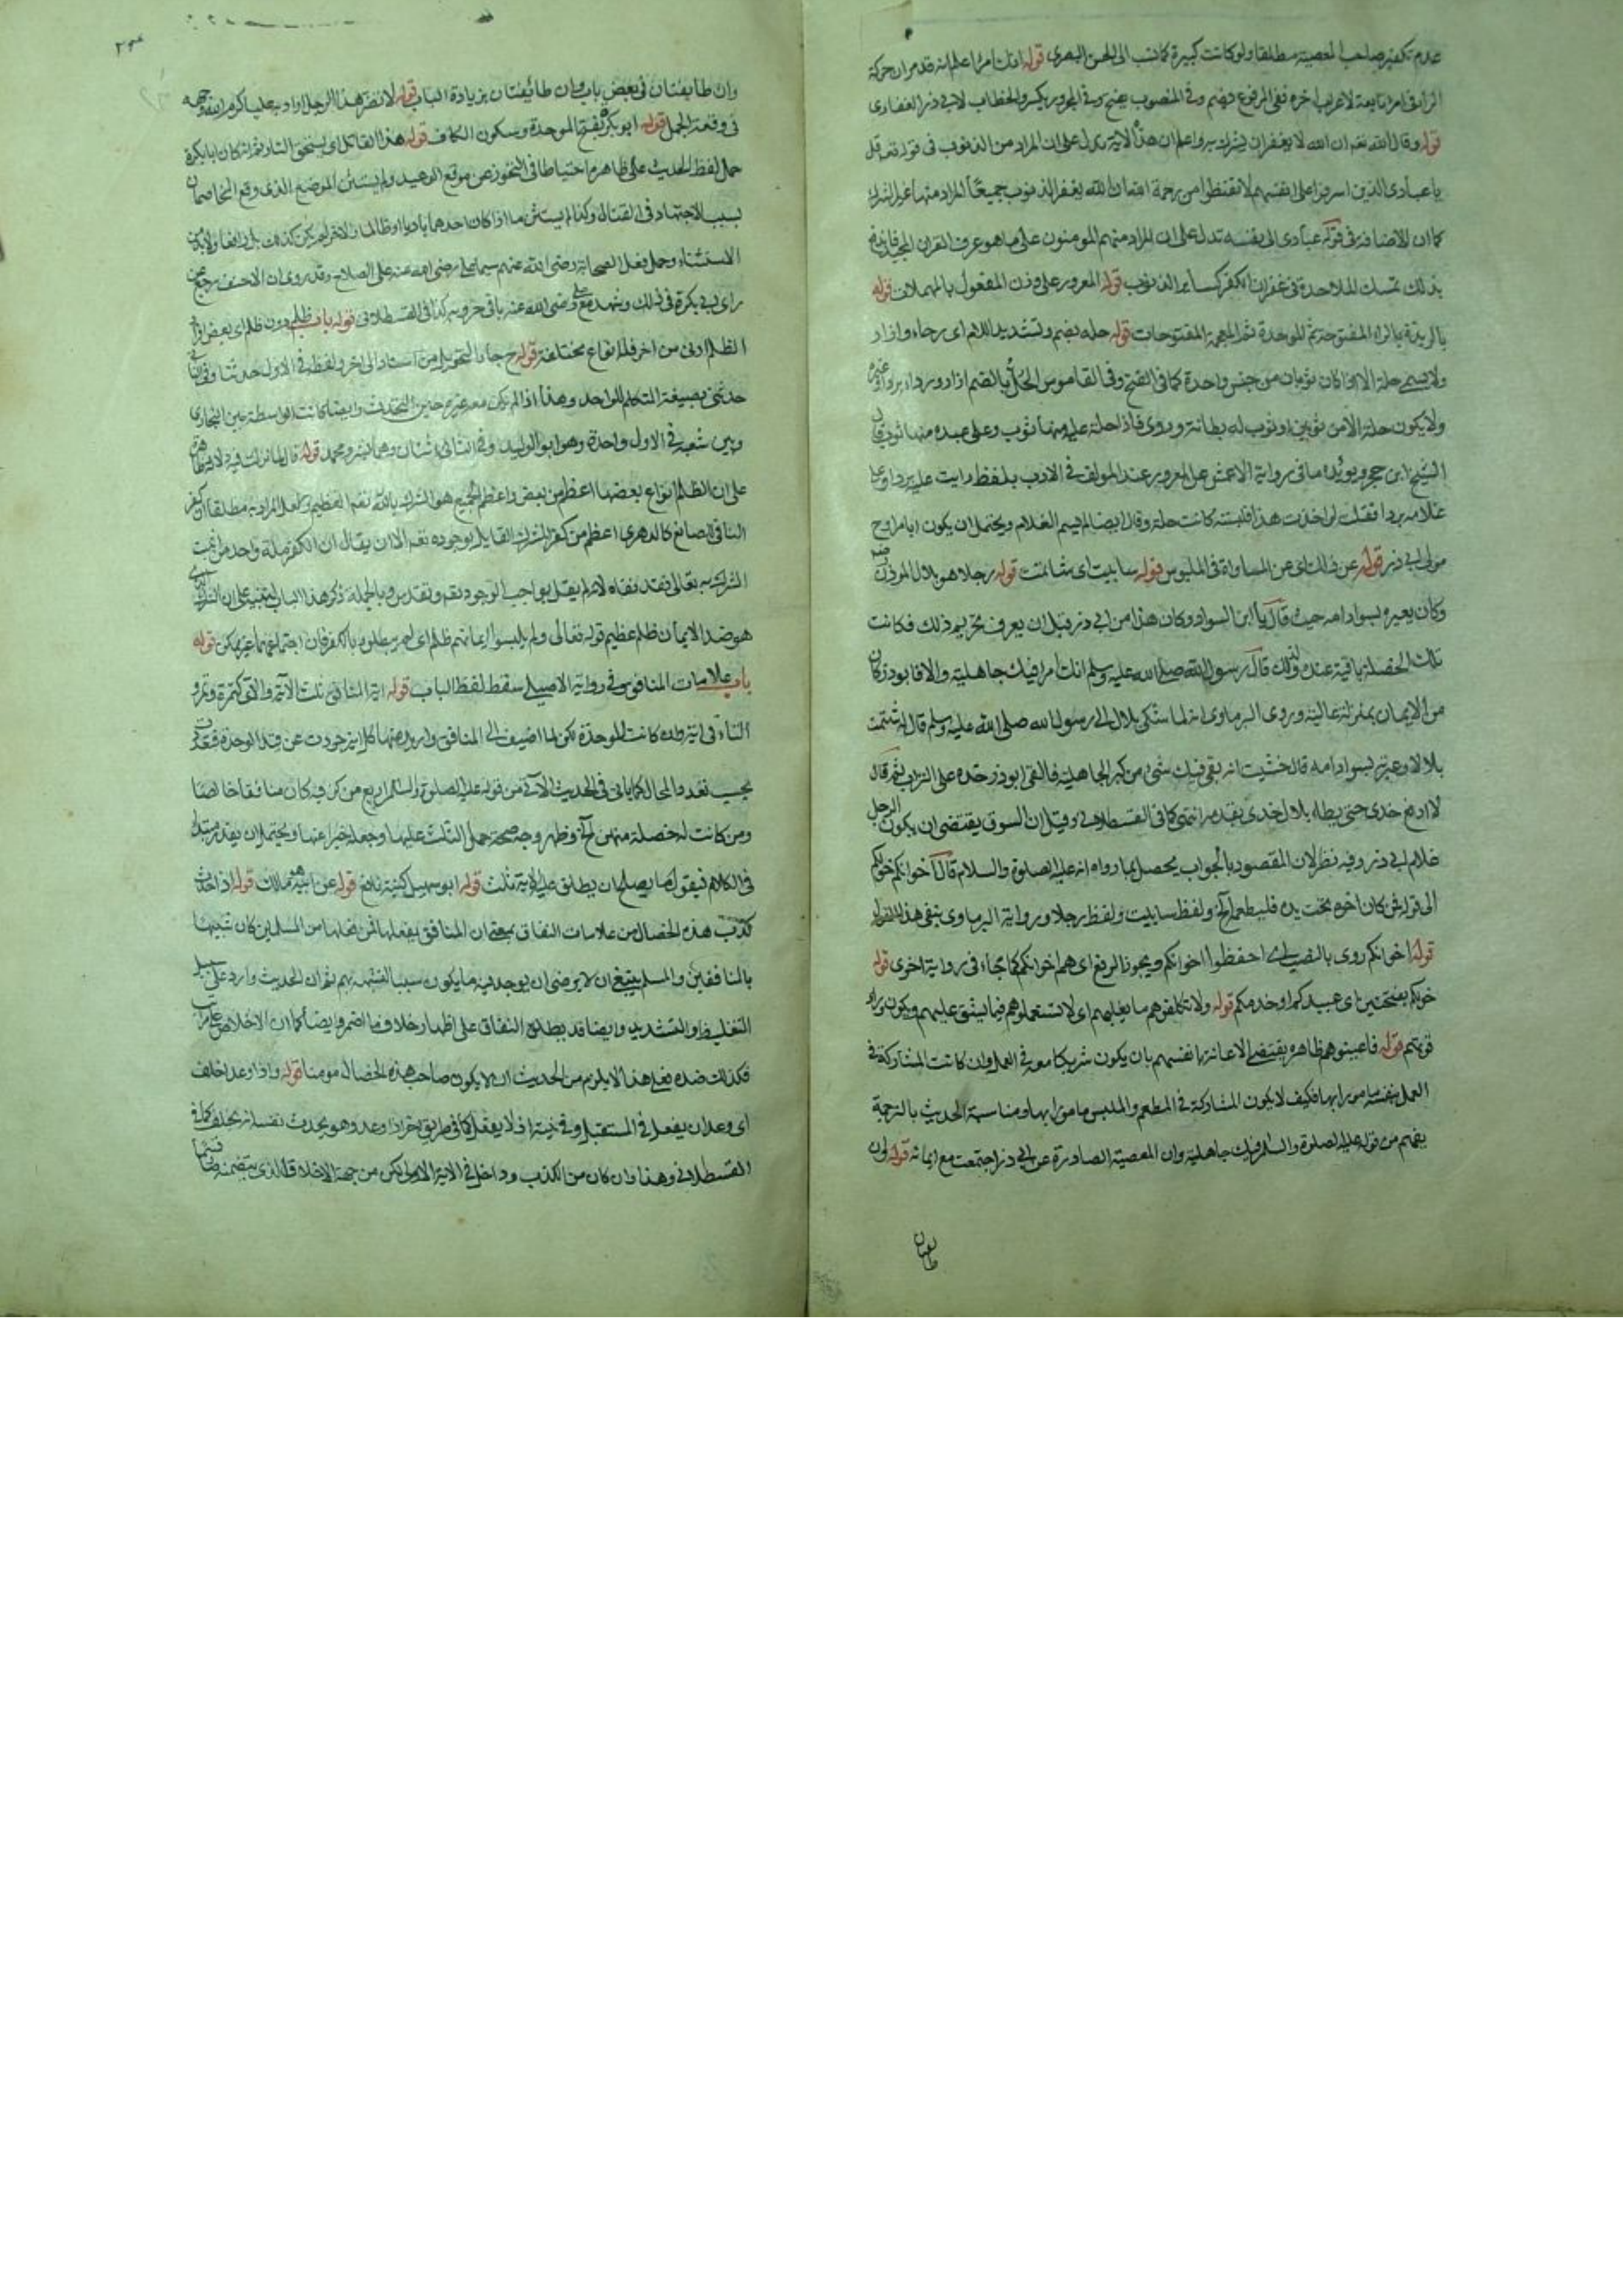 عدم تكفير صاحب المعصية مطلقا ولو كانت كبيرة كما نسب الى الحسن البصري قوله انك امرأ اعلم انه قد مر ان حركة
الراء في امرء تابعة لاعراب اخره ففي المرفوع بضم وفي المنصوب بفتح وفي المجرور بكسر والخطاب لابي ذر الغفاري
قوله وقال الله تعم ان الله لا يغفر ان يشرك به واعلم ان هذه الاية يدل على ان المراد من الذنوب في قوله تعم قل
يا عبادي الذين اسرفوا على انفسهم لا تقنطوا من رحمة الله ان الله يغفر الذنوب جميعًا المراد منها غير الشرك
كما ان الاضافة في قوله عبادي الى نفسه تدل على ان المراد منهم المومنون على ما هو عرف القران المجيد
بذلك تمسك الملاحدة في غفران الكفر كساير الذنوب قوله المعرور على وزن المفعول بالمهملات قوله
بالربذة بالراء المفتوحة ثم الموحدة ثم المعجمة المفتوحات قوله حله بضم وتشديد اللام اى رداء وازار
ولا يسمى حلة الا اذا كان ثوبان من جنس واحدة كما في الفتح وفي القاموس الحُلّ بالضم ازار ورداء برد او غيره
ولا يكون حلة الا من ثوبين او ثوب له بطانة وروى فاذا حلة عليه منها ثوب وعلى عبده منها ثوب قال
الشيخ ابن حجر ويويده ما في رواية الاعمش عن المعرور عند المولف في الادب بلفظ رايت عليه بردا وعلى
غلامه بردا فقلت لو اخذت هذا فلبسته كانت حلة وقال ايضا لم يسم الغلام ويحتمل ان يكون ابا مراوح
مولى ابي ذر قوله عن ذلك اى عن المساواة في الملبوس قوله ساببت اى شاتمت قوله رجلا هو بلال الموذن
وكان يعيره بسواد امه حيث قال يا ابن السوداء وكان هذا من ابي ذر قبل ان يعرف تحريم ذلك فكانت
تلك الخصلة باقية عنده ولذلك قال رسول الله صلى الله عليه وسلم انك امرا فيك جاهلية والا فابوذر كان
من الايمان بمنزلة عالية وروى البرماوى انه لما شتكى بلال الى رسول الله صلى الله عليه وسلم قال له شتمت
بلالا وعيرته بسواد امه قال حسبت انه بقى فيك شئ من كبر الجاهلية فالقى ابوذر خده على التراب ثم قال
لا ارفع خدى حتى يطاه بلال خدى بقدمه انتهى كما في القسطلاني وقيل ان السوق يقتضى ان يكون الرجل
غلام ابي ذر وفيه نظر لان المقصود بالجواب يحصل بما رواه انه عليه الصلوة والسلام قال اخوانكم خولكم
الى قوله فمن كان اخوه تحت يده فليطعمه الخ ولفظ ساببت ولفظ رجلا ورواية البرماوى ينفى هذا القول
قوله اخوانكم روى بالنصب اى احفظوا اخوانكم ويجوز الرفع اى هم اخوانكم كما جاء في رواية اخرى قوله
خولكم بفتحتين اى عبيدكم او خدمكم قوله ولا تكلفوهم ما يغلبهم اى لا تستعملوهم فيما يشق عليهم ويكون وراء
قوتهم قوله فاعينوهم ظاهره يقتضى الاعانة بانفسهم بان يكون شريكا معه في العمل وان كانت المشاركة في
العمل بنفسه مامورا بها فكيف لا يكون المشاركة في المطعم والملبس مامورا بها ومناسبة الحديث بالترجمة
يفهم من قوله عليه الصلوة والسلام فيك جاهلية وان المعصية الصادرة عن ابي ذر اجتمعت مع ايمانه قوله وان
طايفتان
وان طايفتان في بعض باب وان طائفتان بزيادة الباب قوله لانصر هذا الرجل اراد به عليا كرم الله وجهه
في وقعة الجمل قوله ابو بكرة بفتح الموحدة وسكون الكاف قوله هذا القاتل اى يستحق النار ثم انه كان ابا بكرة
حمل لفظ الحديث على ظاهره احتياطا في التحوز عن موقع الوعيد ولم يستثن الموضع الذى وقع التخاصمان
بسبب الاجتهاد في القتال وكذا لم يستثن ما اذا كان احدهما باديا او ظالما والاخر لم يكن كذلك بل دافعا ولابد من
الاستثناء وحمل فعل الصحابة رضى الله عنهم سيما على رضى الله عنه على الصلاح وقد روى ان الاحنف رجع عن
راى ابي بكرة في ذلك وشهد مع على رضى الله عنه باقى حروبه كذا في القسطلاني قوله باب ظلم دون ظلم اى بعض انواع
الظلم ادنى من اخر فله انواع مختلفة قوله ح جاء التحويل من اسناد الى اخر ولفظه في الاول حدثنا وفي الثاني
حدثنى بصيغة المتكلم الواحد وهذا اذا لم يكن معه غيره حين التحديث وايضا كانت الواسطة بين البخارى
وبين شعبة في الاول واحدة وهو ابو الوليد وفي الثاني اثنان وهما بشر ومحمد قوله قال لما نزلت فيه دلالة ظاهرة
على ان الظلم انواع بعضها اعظم من بعض واعظم الجميع هو الشرك بالله تعم العظيم ولعل المراد به مطلقا الكفر
النافى الصانع كالدهرى اعظم من كفر المشرك القايل بوجوده تعم الا ان يقال ان الكفر ملة واحد من
الشرك به تعالى فقد نفاه لانه لم يقل بواجب الوجود تعم وتقدس وبالجملة ذكر هذا الباب للتنبيه على ان الشرك الذى
هو ضد الايمان ظلم عظيم قوله تعالى ولم يلبسوا ايمانهم بظلم اى لم يخلطوه بالكفر فان اجتماعهما غير ممكن قوله
باب علامات المنافق وفي رواية الاصيلى سقط لفظ الباب قوله اية المنافق ثلث الاية والاى كتمرة وتمر و
التاء في اية وان كانت للوحدة لكن لما اضيف الى المنافق واريد منها كل اية جردت عن قيد الوحدة فتعدد
بحسب تعدد المحال كما ياتى في الحديث الاتى من قوله عليه الصلوة والسلام اربع من كن فيه كان منافقا خالصا
ومن كانت له خصلة منهن الخ وظهر وجه صحة حمل الثلث عليها وجعله خبرا عنها ويحتمل ان يقدر مبتدا
في الكلام فيقول ما يصلح ان يطلق عليه الاية ثلث قوله ابو سهيل كنية نافع قوله عن ابيه هو مالك قوله اذا حدث
كذب هذه الخصال من علامات النفاق بمعنى ان المنافق يفعلها فمن فعلها من المسلمين كان شبيها
بالمنافقين والمسلم ينبغى ان لا يرضى ان يوجد فيه ما يكون سببا لتشبهه بهم ثم ان الحديث وارد على سبيل
التغليظ والتشديد وايضا قد يطلق النفاق على اظهار خلاف ما اضمر وايضا كما ان الاخلاص على مراتب
فكذلك ضده فعلى هذا لا يلزم من الحديث ان لا يكون صاحب هذه الخصال مومنا قوله واذا وعد اخلف
اى وعد ان يفعل في المستقبل وفي نيته ان لا يفعل كما في طريق اخر اذا وعد وهو يحدث نفسه انه يخلف كما في
القسطلاني وهذا وان كان من الكذب وداخل في الاية الاولى لكن من جهة الاخلاف الذى يتضمنه